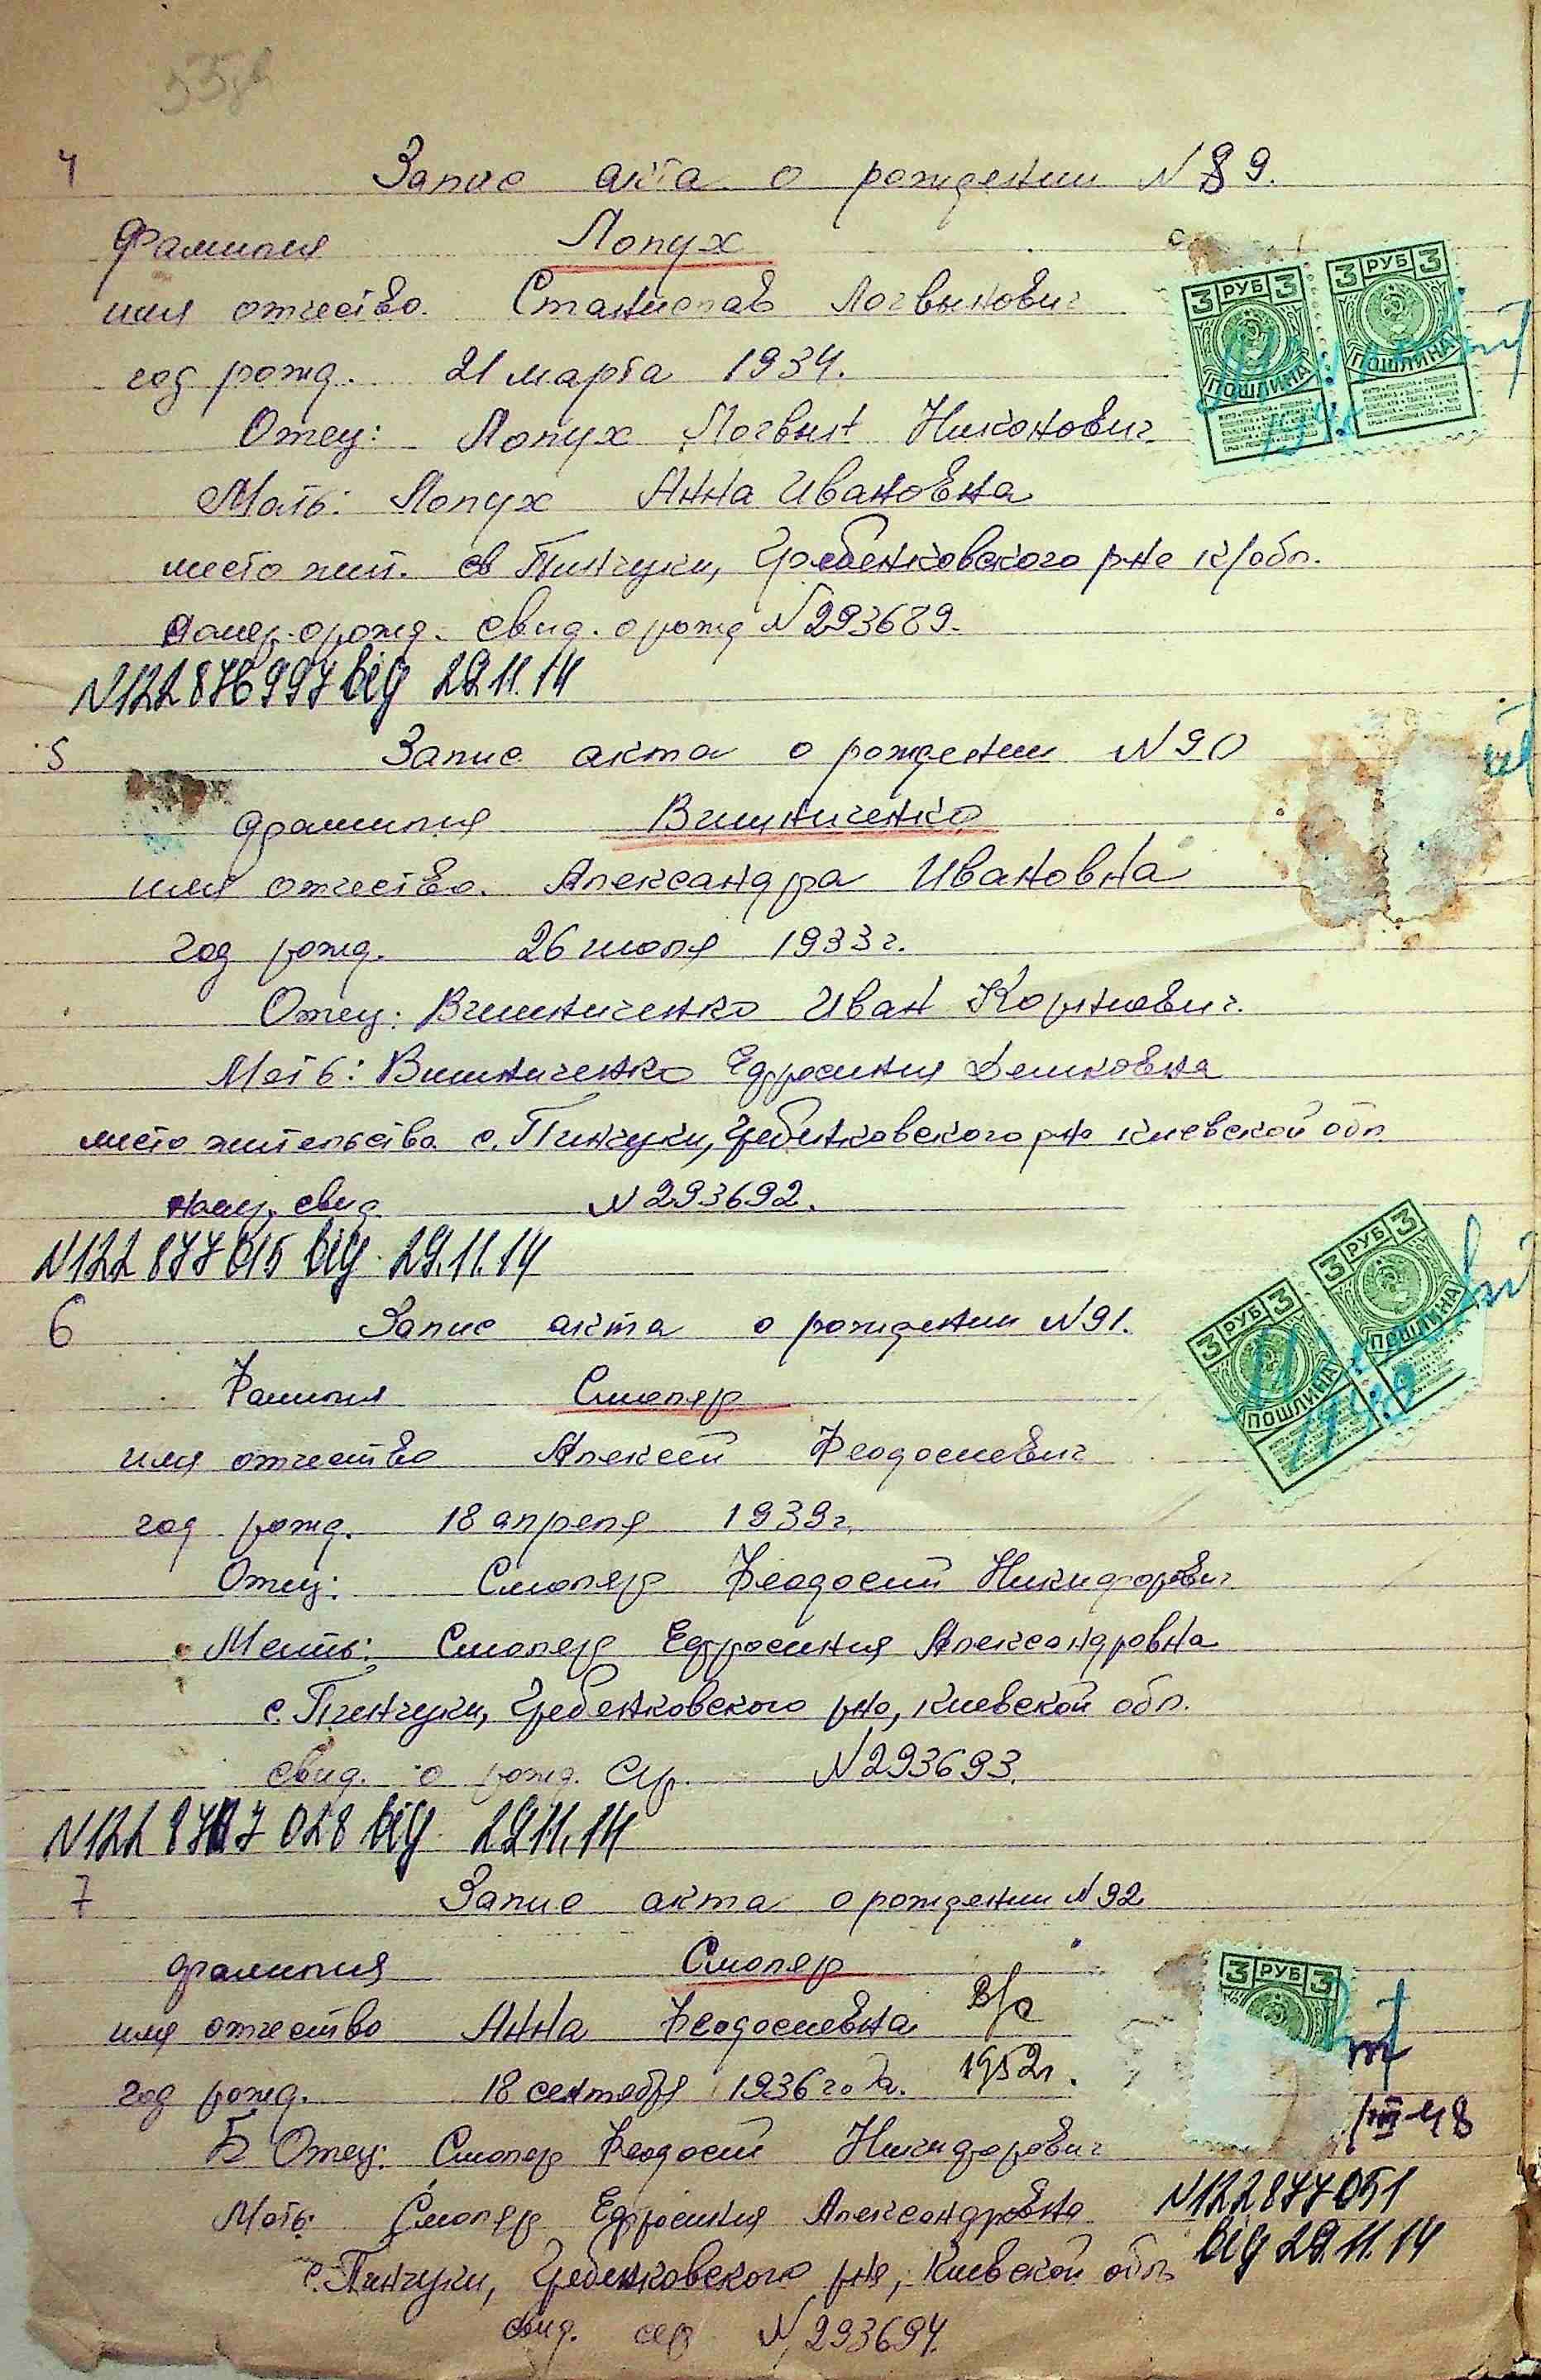 4 Запис акта о рождении N 89.
Фамилия Лопух
имя отчество. Станислав Логвынович
год рожд. 21 марта 1934.
Отец: Лопух Логвын Никонович
Мать: Лопух Анна Ивановна
место жит. с Пинчуки, Гребенковского р-на к/обл.
номер о рожд. свид. о рожд N 293689.
N122 876 997 від 29.11.14
5 Запис акта о рождении N 90
фамилия Вишниченко
имя отчество. Александра Ивановна
год рожд. 26 июля 1933 г.
Отец: Вишниченко Иван Корниевич.
Мать: Вишниченко Ефросиния Демковна
место жительства с. Пинчуки, Гребенковского р-на киевской обл
ном. свид N 293692.
N122 877 015 від 29.11.14
6 Запис акта о рождении N 91.
Фамилия Смоляр
имя отчество Алексей Феодосиевич
год рожд. 18 апреля 1939 г.
Отец: Смоляр Феодосий Никифорович
Мать: Смоляр Ефросиния Александровна
с. Пинчуки, Гребенковского р-на, киевской обл.
свид. о рожд. сер. N 293693.
N122 877 028 від 29.11.14
7 Запис акта о рождении N 92
фамилия Смоляр
имя отчество Анна Феодосиевна в/с
год рожд. 18 сентября 1936 года. 1952 г.
Отец: Смоляр Феодосий Никифорович
Мать: Смоляр Ефросиния Александровна N122877051
с. Пинчуки, Гребенковского р-на, Киевской обл від 29.11.14
свид. сер N 293694.
3 РУБ 3 ПОШЛИНА
3 РУБ 3 ПОШЛИНА
3 РУБ 3 ПОШЛИНА
3 РУБ 3 ПОШЛИНА
3 РУБ 3